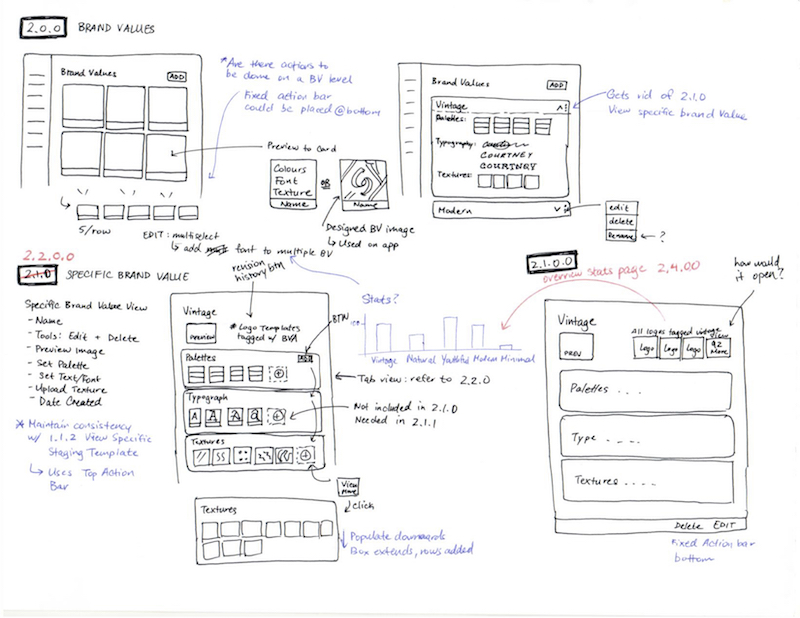 2.0.0 BRAND VALUES
Brand Values
ADD
*Are there actions to
be done on a BV level
Fixed action bar
could be placed @ bottom
Preview to Card
Colours
Font
Texture
Name
OR
Name
Designed BV image
↳ Used on app
5/row
EDIT: multiselect
↳ add font to multiple BV
Brand Values
ADD
Vintage
Palettes:
Typography:
COURTNEY
COURTNEY
Textures:
Modern
Gets rid of 2.1.0
View specific brand value
edit
delete
Rename
?
2.2.0.0
2.1.0 SPECIFIC BRAND VALUE
Specific Brand Value View
- Name
- Tools: Edit + Delete
- Preview Image
- Set Palette
- Set Text/Font
- Upload Texture
- Date Created
* Maintain consistency
w/ 1.1.2 View Specific
Staging Template
↳ Uses Top Action
Bar
revision
history btn
Vintage
PREVIEW
# Logo Templates
tagged w/ BVA
BTN
Palettes
Typograph
A A A a
Textures
View
More
click
Textures
Populate downwards
Box extends, rows added
Tab view: refer to 2.2.0
Not included in 2.1.0
Needed in 2.1.1
Stats?
100
Vintage Natural Youthful Modern Minimal
2.1.0.0
overview stats page 2.4.00
how would
it open?
Vintage
PREV
All logos tagged vintage
Logo Logo Logo
View
92
More
Palettes . . .
Type - - - -
Textures . . . .
Delete EDIT
Fixed Action bar
bottom